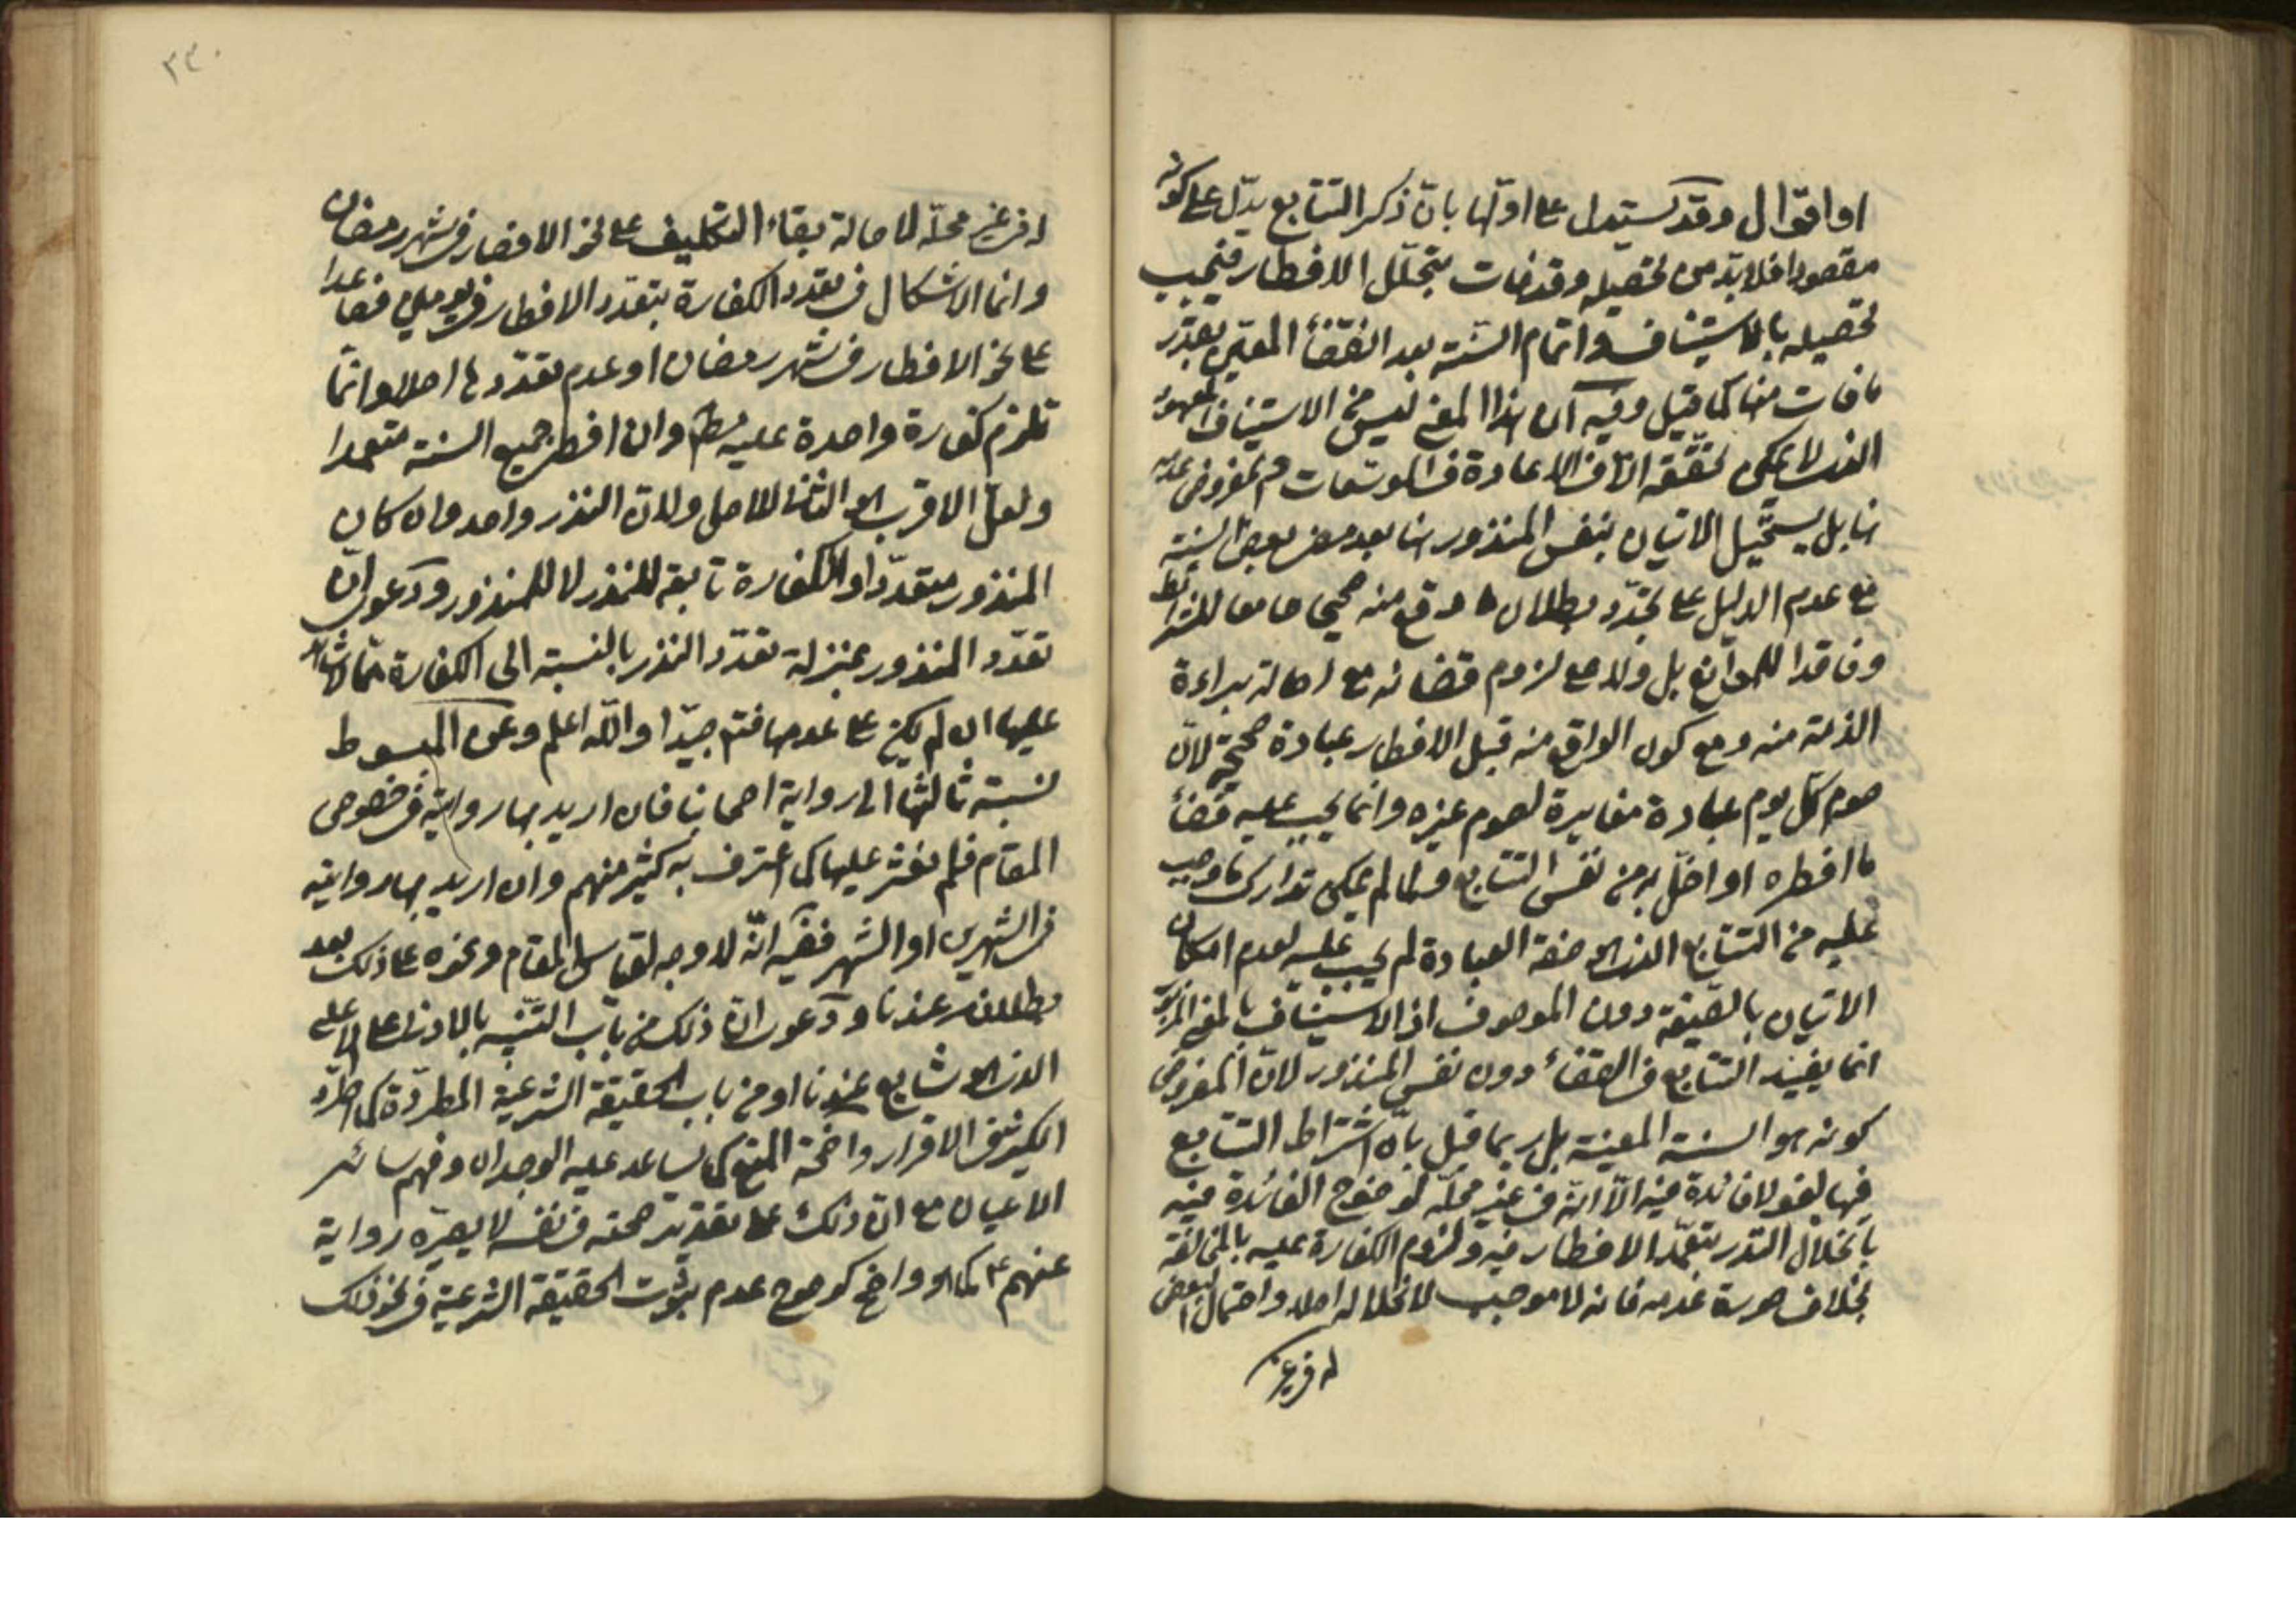 او اقوال وقد يستدل على اولها بان ذكر التتابع يدل على كونه
مقصودا فلا بد من تحصيله وقد فات بتخلل الافطار فيجب
تحصيله بالاستيناف واتمام السنة بعد انقضاء المعين بقدر
ما فات منها كما قيل وفيه ان هذا المعنى ليس من الاستيناف المعهود
الذى لا يمكن تحققه الا فى الاعادة فى الوقت المفروض عدمه
هنا بل يستحيل الاتيان بنفس المنذور هنا بعد مضى بعض السنة
مع عدم الدليل على تجدد بطلان ما وقع منه صحيحا جامعا للشرائط
وفاقدا للموانع بل ولا على لزوم قضائه مع اصالة براءة
الذمة منه ومع كون الواقع منه قبل الافطار عبادة صحيحة لان
صوم كل يوم عبادة مغايرة لصوم غيره وانما يجب عليه قضاء
ما افطره او اخل به من نفس التتابع ولما لم يمكن تدارك ما وجب
عليه من التتابع الذى هو صفة العبادة لم يجب عليه لعدم امكان
الاتيان بالصفة دون الموصوف اذ الاستيناف بالمعنى المزبور
انما يفيد التتابع فى القضاء دون نفس المنذور لان المفروض
كونه هو السنة المعينة بل ربما قيل بان اشتراط التتابع
فيها لغو لا فائدة فيه الا انه فى غير محله لوضوح الفائدة فيه
بانحلال النذر بتعمد الافطار فيه ولزوم الكفارة عليه بالمخالفة
بخلاف صورة عدمه فانه لا موجب لانحلاله اصلا واحتمال البعض
له فى غير
٢٣٠
له فى غير محله لاصالة بقاء التكليف على نحو الافطار فى شهر رمضان
وانما الاشكال فى تعدد الكفارة بتعدد الافطار فى يومين فصاعدا
على نحو الافطار فى شهر رمضان او عدم تعددها اصلا وانما
تلزم كفارة واحدة عليه مط وان افطر جميع السنة متعمدا
ولعل الاقرب هو الثانى للاصل ولان النذر واحد وان كان
المنذور متعددا والكفارة تابعة للنذر لا للمنذور ودعوى ان
تعدد المنذور بمنزلة تعدد النذر بالنسبة الى الكفارة مما لا شاهد
عليها ان لم يكن على عدمها فتم جيدا والله اعلم وعن المبسوط
نسبة ثالثها الى رواية اصحابنا فان اريد بها رواية فى خصوص
المقام فلم نعثر عليها كما اعترف به كثير منهم وان اريد بها رواية
فى الشهرين او الشهر ففيه انه لا وجه لقياس المقام ونحوه على ذلك بعد
بطلانه عندنا ودعوى ان ذلك من باب التنبيه بالادنى على الاعلى
الذى هو شايع عندنا او من باب الحقيقة الشرعية المطردة كما اطرد
الكثير فى الاقرار واضحة المنع كما يساعد عليه الوجدان وفهم سائر
الاعيان مع ان ذلك على تقدير صحته فى نفسه لا يصيره رواية
عنهم ع كما هو واضح كوضوح عدم ثبوت الحقيقة الشرعية فى نحو ذلك